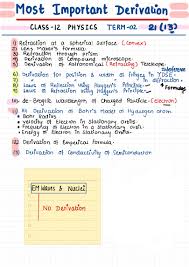 Most Important Derivation
CLASS-12 PHYSICS TERM-02 21 (13)
1) Refraction at a Spherical Surface (Convex)
2) Lens Maker's Formula.
3) Refraction through prism
4) Derivation of Compound microscope
5) Derivation of Astronomical (Refracting) Telescope.
6) Derivation for position & width of fringes in YDSE
7) in diffraction
8) Laws of Reflection using Huygen's Principle
9) Laws of Refraction using Huygen's Principle
Formulas
10) de-Broglie Wavelength of Charged Particle (Electron)
11) Derivation of Bohr's Model of Hydrogen atom
Bohr Radius
Velocity of Electron in Stationary Orbits
Frequency of Electron in Stationary Orbits
Energy of Electron in Stationary Orbits
12) Derivation of
13) Derivation of Conductivity of Semiconductor
EM Waves & Nuclei
NO Derivation